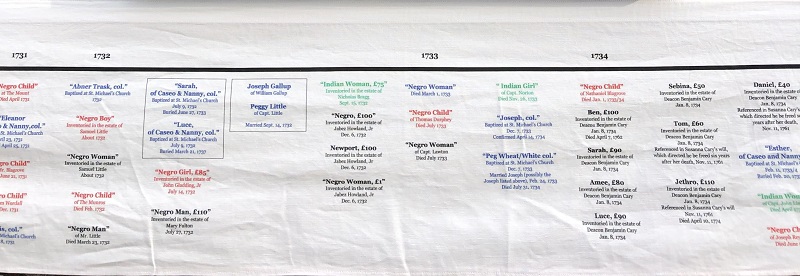 1731
1732
1733
1734
Negro Child"
at The Mount
Died April 1731
"Eleanor
& Nanny, col."
Michael's Church
1731
Died Feb. 1732
"Abner Trask, col."
Baptized at St. Michael's Church
1732
"Negro Boy"
Inventoried in the estate of
Samuel Little
About 1732
"Negro Woman"
Inventoried in the estate of
Samuel Little
About 1732
"Negro Child"
of The Munros
Died Feb. 1732
"Negro Man"
of Mr. Little
Died March 23, 1732
"Sarah,
of Caseo & Nanny, col."
Baptized at St. Michael's Church
July 9, 1732
Buried June 27, 1733
"Luce,
of Caseo & Nanny, col."
Baptized at St. Michael's Church
July 9, 1732
Buried March 21, 1737
"Negro Girl, £85"
Inventoried in the estate of
John Gladding, Jr
July 14, 1732
"Negro Man, £110"
Inventoried in the estate of
Mary Fulton
July 27, 1732
Joseph Gallup
of William Gallup
Peggy Little
of Capt. Little
Married Sept. 14, 1732
"Indian Woman, £75"
Inventoried in the estate of
Nicholas Bragg
Sept. 15, 1732
"Negro, £100"
Inventoried in the estate of
Jabez Howland, Jr
Dec. 6, 1732
Newport, £100
Inventoried in the estate of
Jabez Howland, Jr
Dec. 6, 1732
"Negro Woman, £1"
Inventoried in the estate of
Jabez Howland, Jr
Dec. 6, 1732
"Negro Woman"
Died March 1, 1733
"Negro Child"
of Thomas Dorphey
Died July 1733
"Negro Woman"
of Capt. Lawton
Died July 1733
"Indian Girl"
of Capt. Norton
Died Nov. 28, 1733
"Joseph, col."
Baptized at St. Michael's Church
Dec. 7, 1733
Confirmed April 14, 1734
"Peg Wheat/White col."
Baptized at St. Michael's Church
Dec. 7, 1733
Married Joseph (possibly the
Joseph listed above), Feb. 24, 1733
Died July 31, 1734
"Negro Child"
of Nathaniel Blagrove
Died Jan. 1, 1733/34
Ben, £100
Inventoried in the estate of
Deacon Benjamin Cary
Jan. 8, 1734
Died April 7, 1762
Sarah, £90
Inventoried in the estate of
Deacon Benjamin Cary
Jan. 8, 1734
Amee, £80
Inventoried in the estate of
Deacon Benjamin Cary
Jan. 8, 1734
Luce, £90
Inventoried in the estate of
Deacon Benjamin Cary
Jan. 8, 1734
Sebina, £50
Inventoried in the estate of
Deacon Benjamin Cary
Jan. 8, 1734
Tom, £60
Inventoried in the estate of
Deacon Benjamin Cary
Jan. 8, 1734
Referenced in Susanna Cary's will,
which directed he be freed six years
after her death, Nov. 11, 1761
Jethro, £110
Inventoried in the estate of
Deacon Benjamin Cary
Jan. 8, 1734
Referenced in Susanna Cary's will,
Nov. 11, 1761
Died April 10, 1774
Daniel, £40
Inventoried in the estate of
Deacon Benjamin Cary
Jan. 8, 1734
Referenced in Susanna Cary's
which directed he be freed
years after her death,
Nov. 11, 1761
"Esther,
of Caseo and Nanny
Baptized at St. Michael's
"Indian Woman
of Capt.
"Negro Ch
of Joseph